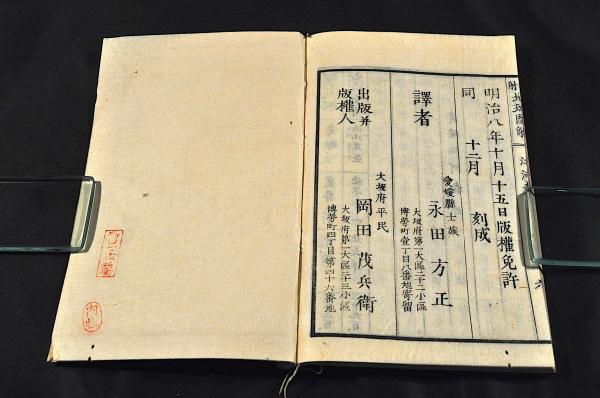 明治八年十月十五日版權免許
同　十二月　刻成
譯者
愛媛縣士族
永田方正
大坂府第一大區二十二小區
博勞町壹丁目八番地寄留
出版并
版權人
大坂府平民
岡田茂兵衛
大坂府第一大區二十三小區
博勞町四丁目第四十六番地